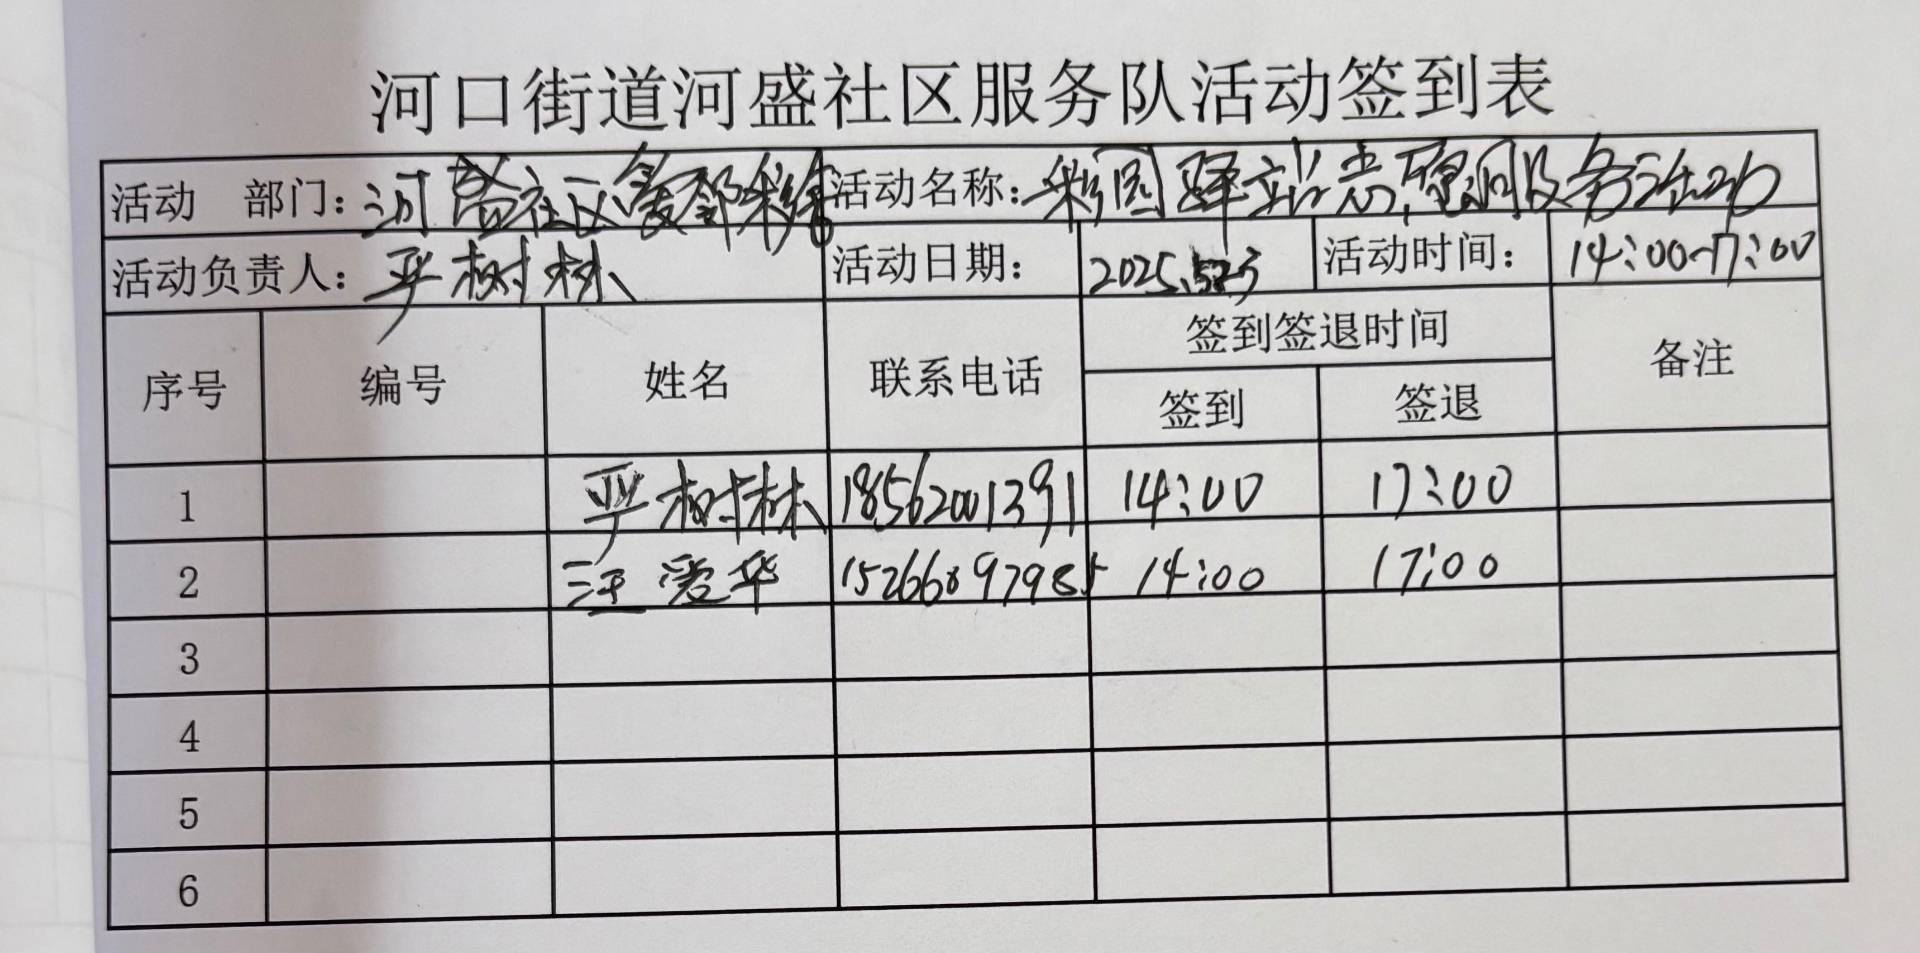 河口街道河盛社区服务队活动签到表
活动 部门: 河盛社区 活动名称: 彩图驿站志愿服务活动
活动负责人: 严树林 活动日期: 2025. 活动时间: 14:00-17:00
序号 编号 姓名 联系电话 签到签退时间 备注
签到 签退
1 严树林 18562001391 14:00 17:00
2 汪爱华 15266097985 14:00 17:00
3
4
5
6